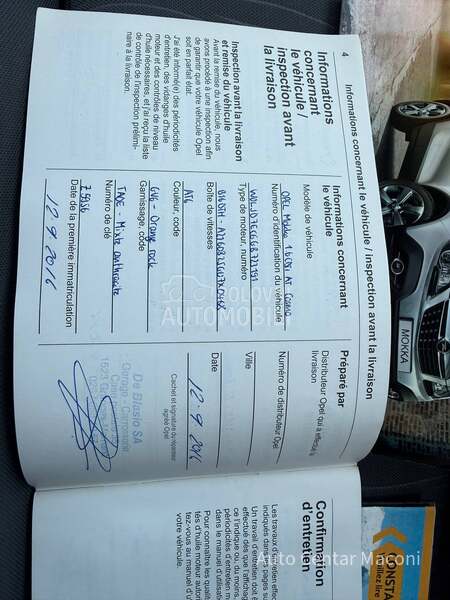 4
Informations concernant le véhicule / inspection avant la livraison
Informations
concernant
le véhicule /
inspection avant
la livraison
Inspection avant la livraison
et remise du véhicule
Avant la remise du véhicule, nous
avons procédé à une inspection afin
de garantir que votre véhicule Opel
soit en parfait état.
J'ai été informé(e) des périodicités
d'entretien, des vidanges d'huile
moteur et des contrôles de niveau
d'huile nécessaires, et j'ai reçu la liste
de contrôle de l'inspection prélimi-
naire à la livraison.
Informations concernant
le véhicule
Modèle de véhicule
OPEL Mokka 1.6 CDTi AT Cosmo
Numéro d'identification du véhicule
Type de moteur, numéro
Boîte de vitesses
AT6
Couleur, code
G4G - Orange rock
Garnissage, code
Numéro de clé
Date de la première immatriculation
12.9.2016
Préparé par
Distributeur Opel qui a effectué la
livraison
Numéro de distributeur Opel
Ville
Date
12.9.2016
Cachet et signature du réparateur
agréé Opel
De Blasio SA
Garage - Carrosserie
Confirmation
d'entretien
Les travaux d'entretien
indiqués dans les pages
Un travail d'entretien doit
effectué dès que l'affichage
ce l'indique ou, du moins,
périodicités d'entretien
dans le manuel d'utilis
Pour connaître les qualit
tés d'huile moteur autor
tez-vous au manuel d'u
votre véhicule.
MOKKA
POLOVNI
AUTOMOBILI
Auto Centar Maconi